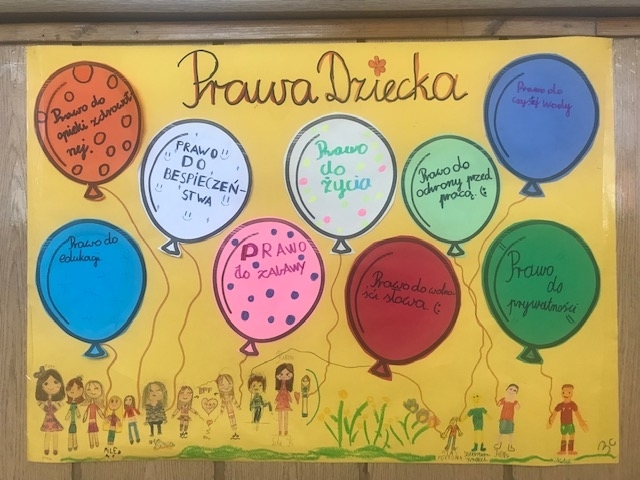 Prawa Dziecka
Prawo do
opieki zdrowot
nej.
PRAWO
DO
BESPIECZEŃ-
STWA
Prawo
do
życia
Prawo do
ochrony przed
pracą
Prawo do
czystej wody
Prawo do
edukacji
PRAWO
do zabawy
Prawo do wolno
ści słowa
Prawo
do
prywatności
BFF